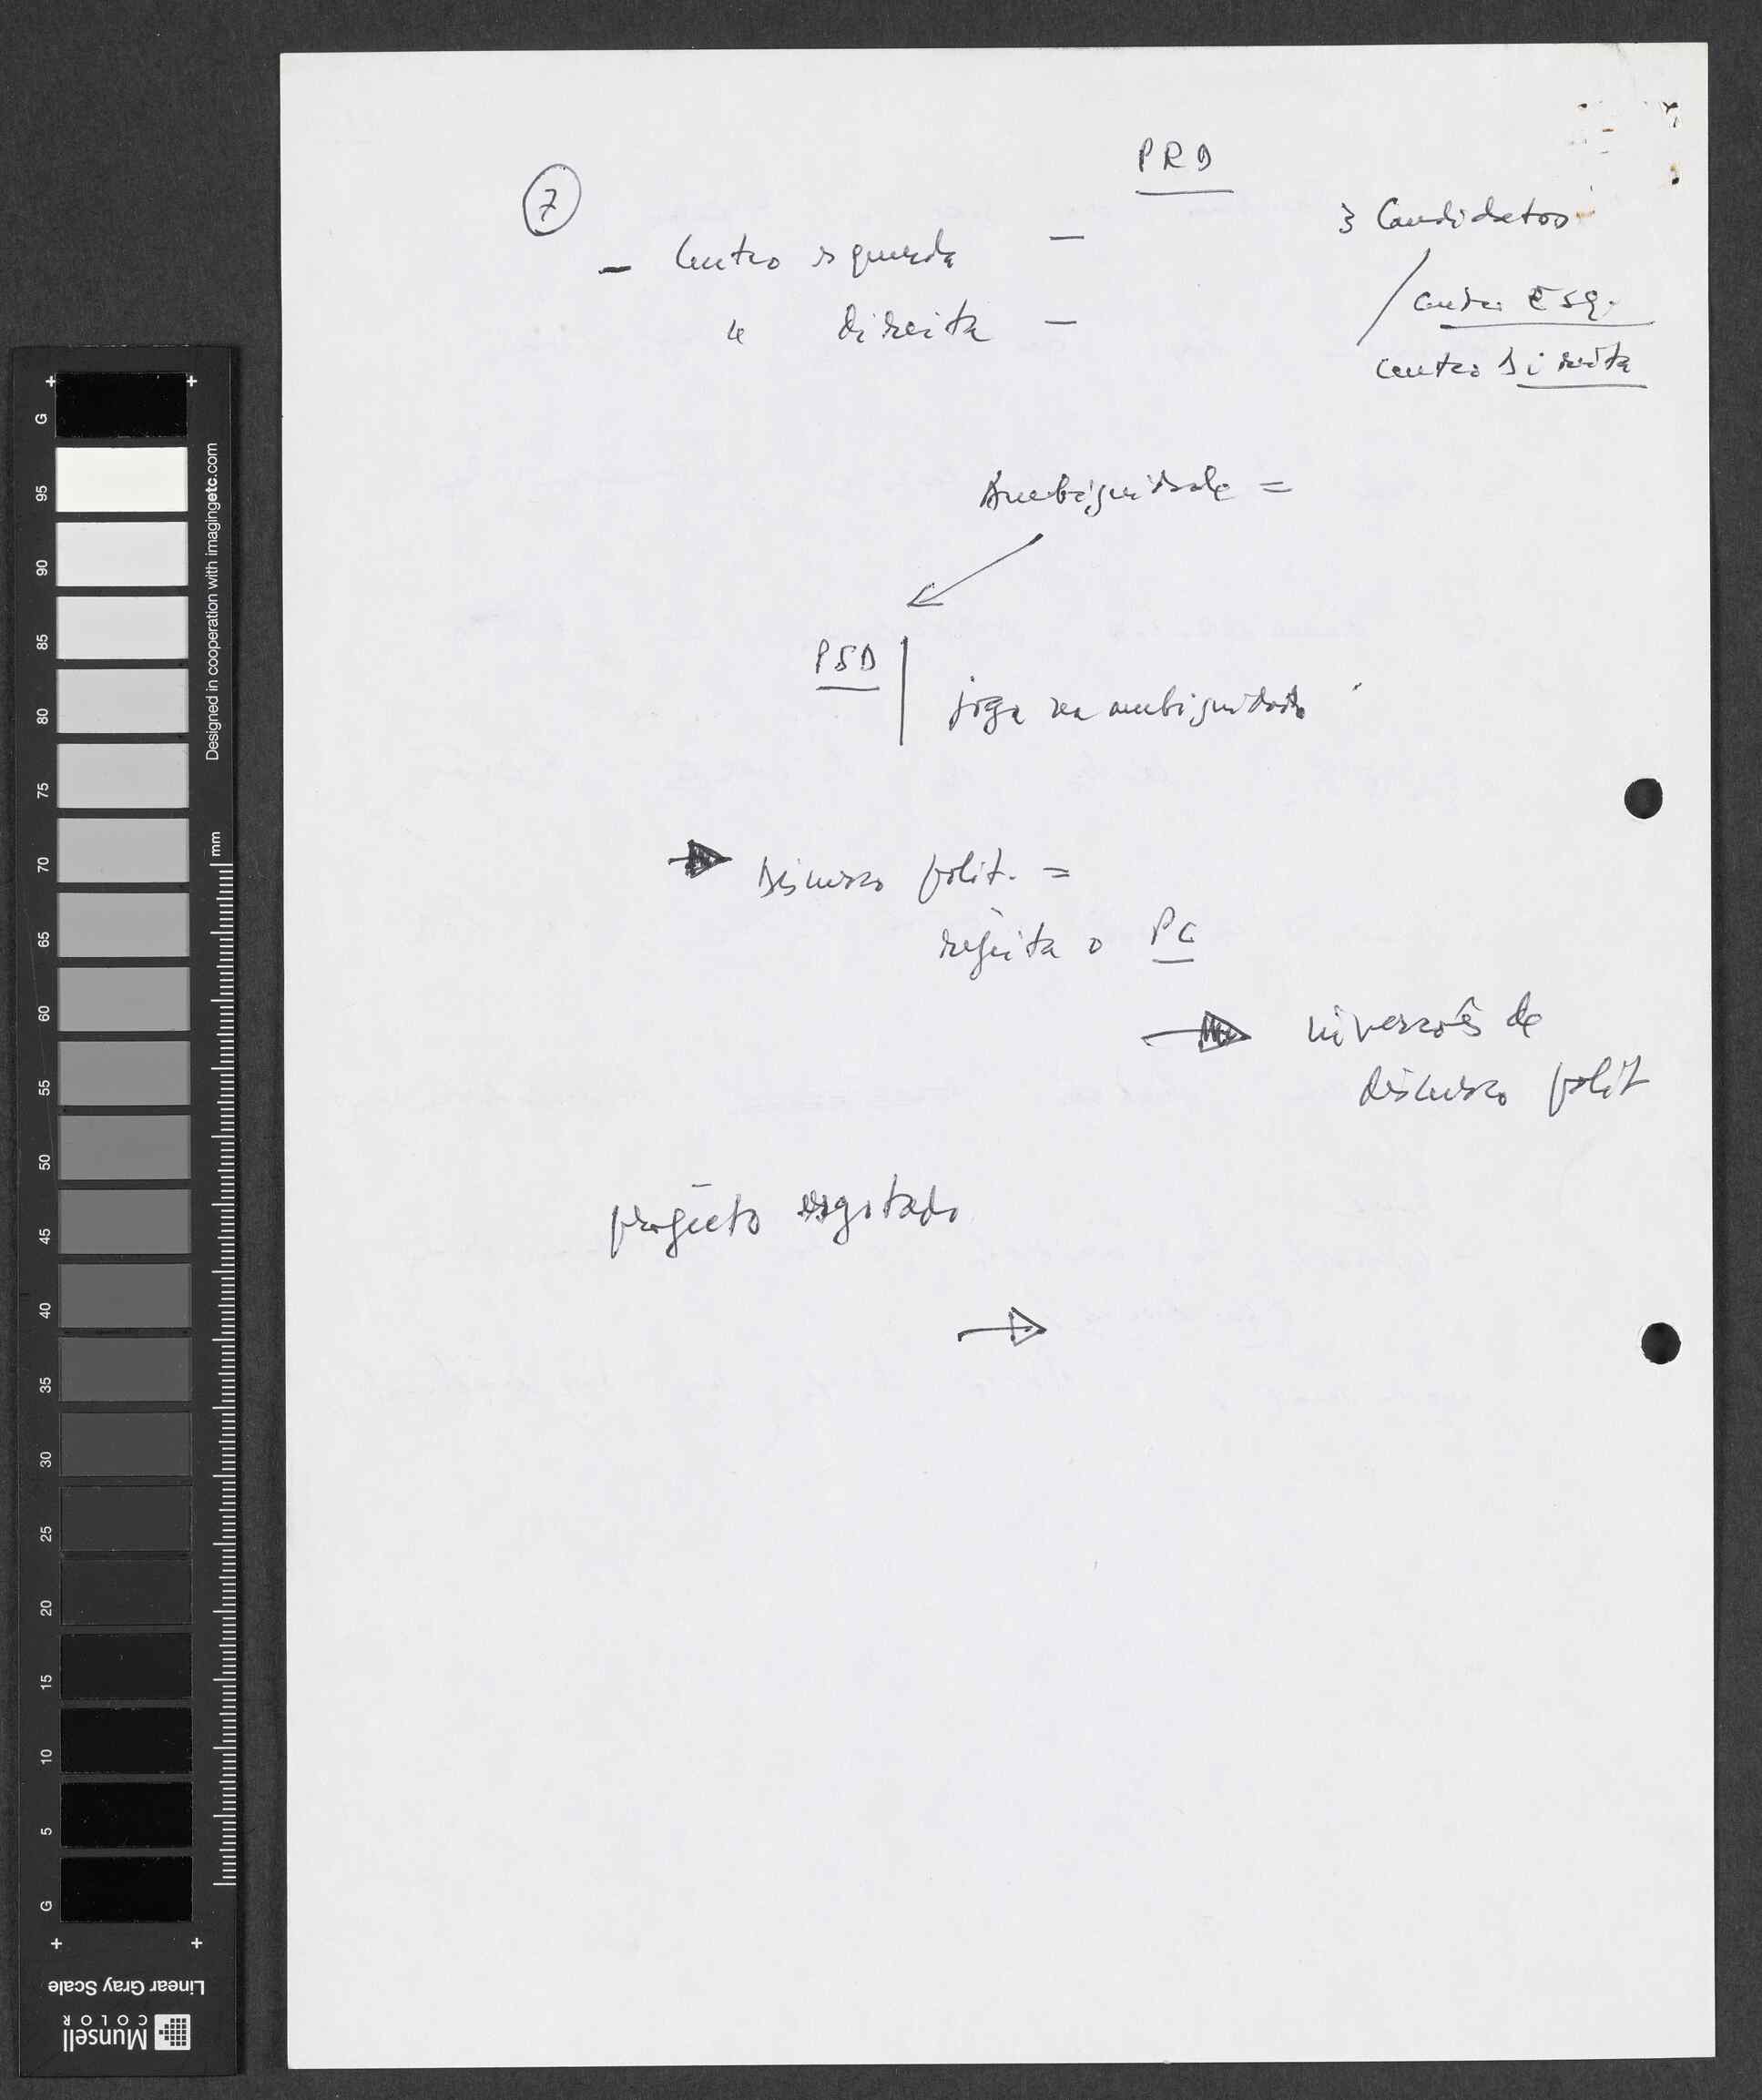 PRD
7
3 Candidatos
- Centro esquerda -
" direita -
centro Esq.
centro Direita
Ambiguidade =
PSD
joga na ambiguidade
Discurso polit. =
rejeita o PC
inversões de
discurso polit
projeto esgotado
G
95
90
85
80
75
70
65
60
55
50
45
40
35
30
25
20
15
10
5
G
Designed in cooperation with imagingetc.com
mm
Linear Gray Scale
Munsell
COLOR